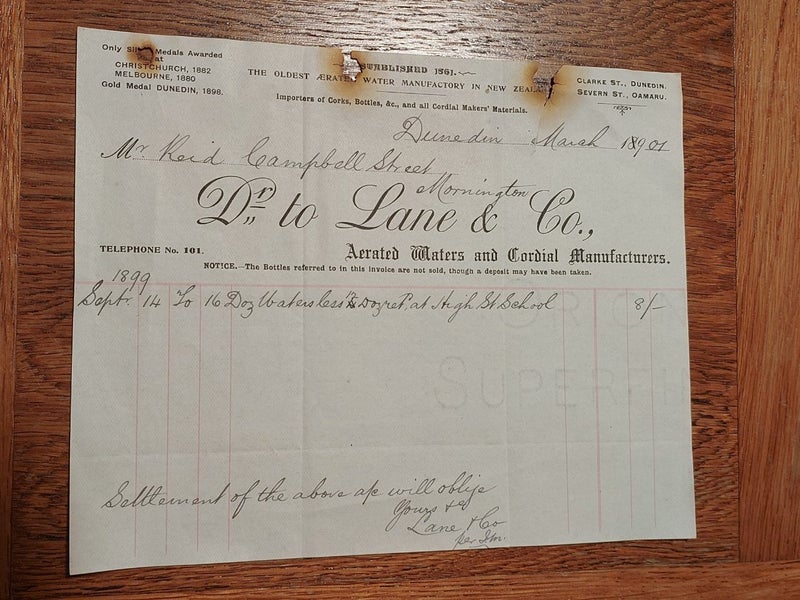 Only Silver Medals Awarded
at
CHRISTCHURCH, 1882
MELBOURNE, 1880
Gold Medal DUNEDIN, 1898.
ESTABLISHED 1861.
THE OLDEST ÆRATED WATER MANUFACTORY IN NEW ZEALAND
Importers of Corks, Bottles, &c., and all Cordial Makers' Materials.
CLARKE ST., DUNEDIN.
SEVERN ST., OAMARU.
Dunedin March 1901
Mr Reid Campbell Street
Mornington
Dr. to Lane & Co.,
TELEPHONE No. 101.
Aerated Waters and Cordial Manufacturers.
NOTICE.—The Bottles referred to in this invoice are not sold, though a deposit may have been taken.
1899
Sept. 14 To 16 Doz Waters less Doz ret. at High St School 8/-
ORION
SUPERFIN
Settlement of the above a/c will oblige
Yours &c
Lane & Co
per